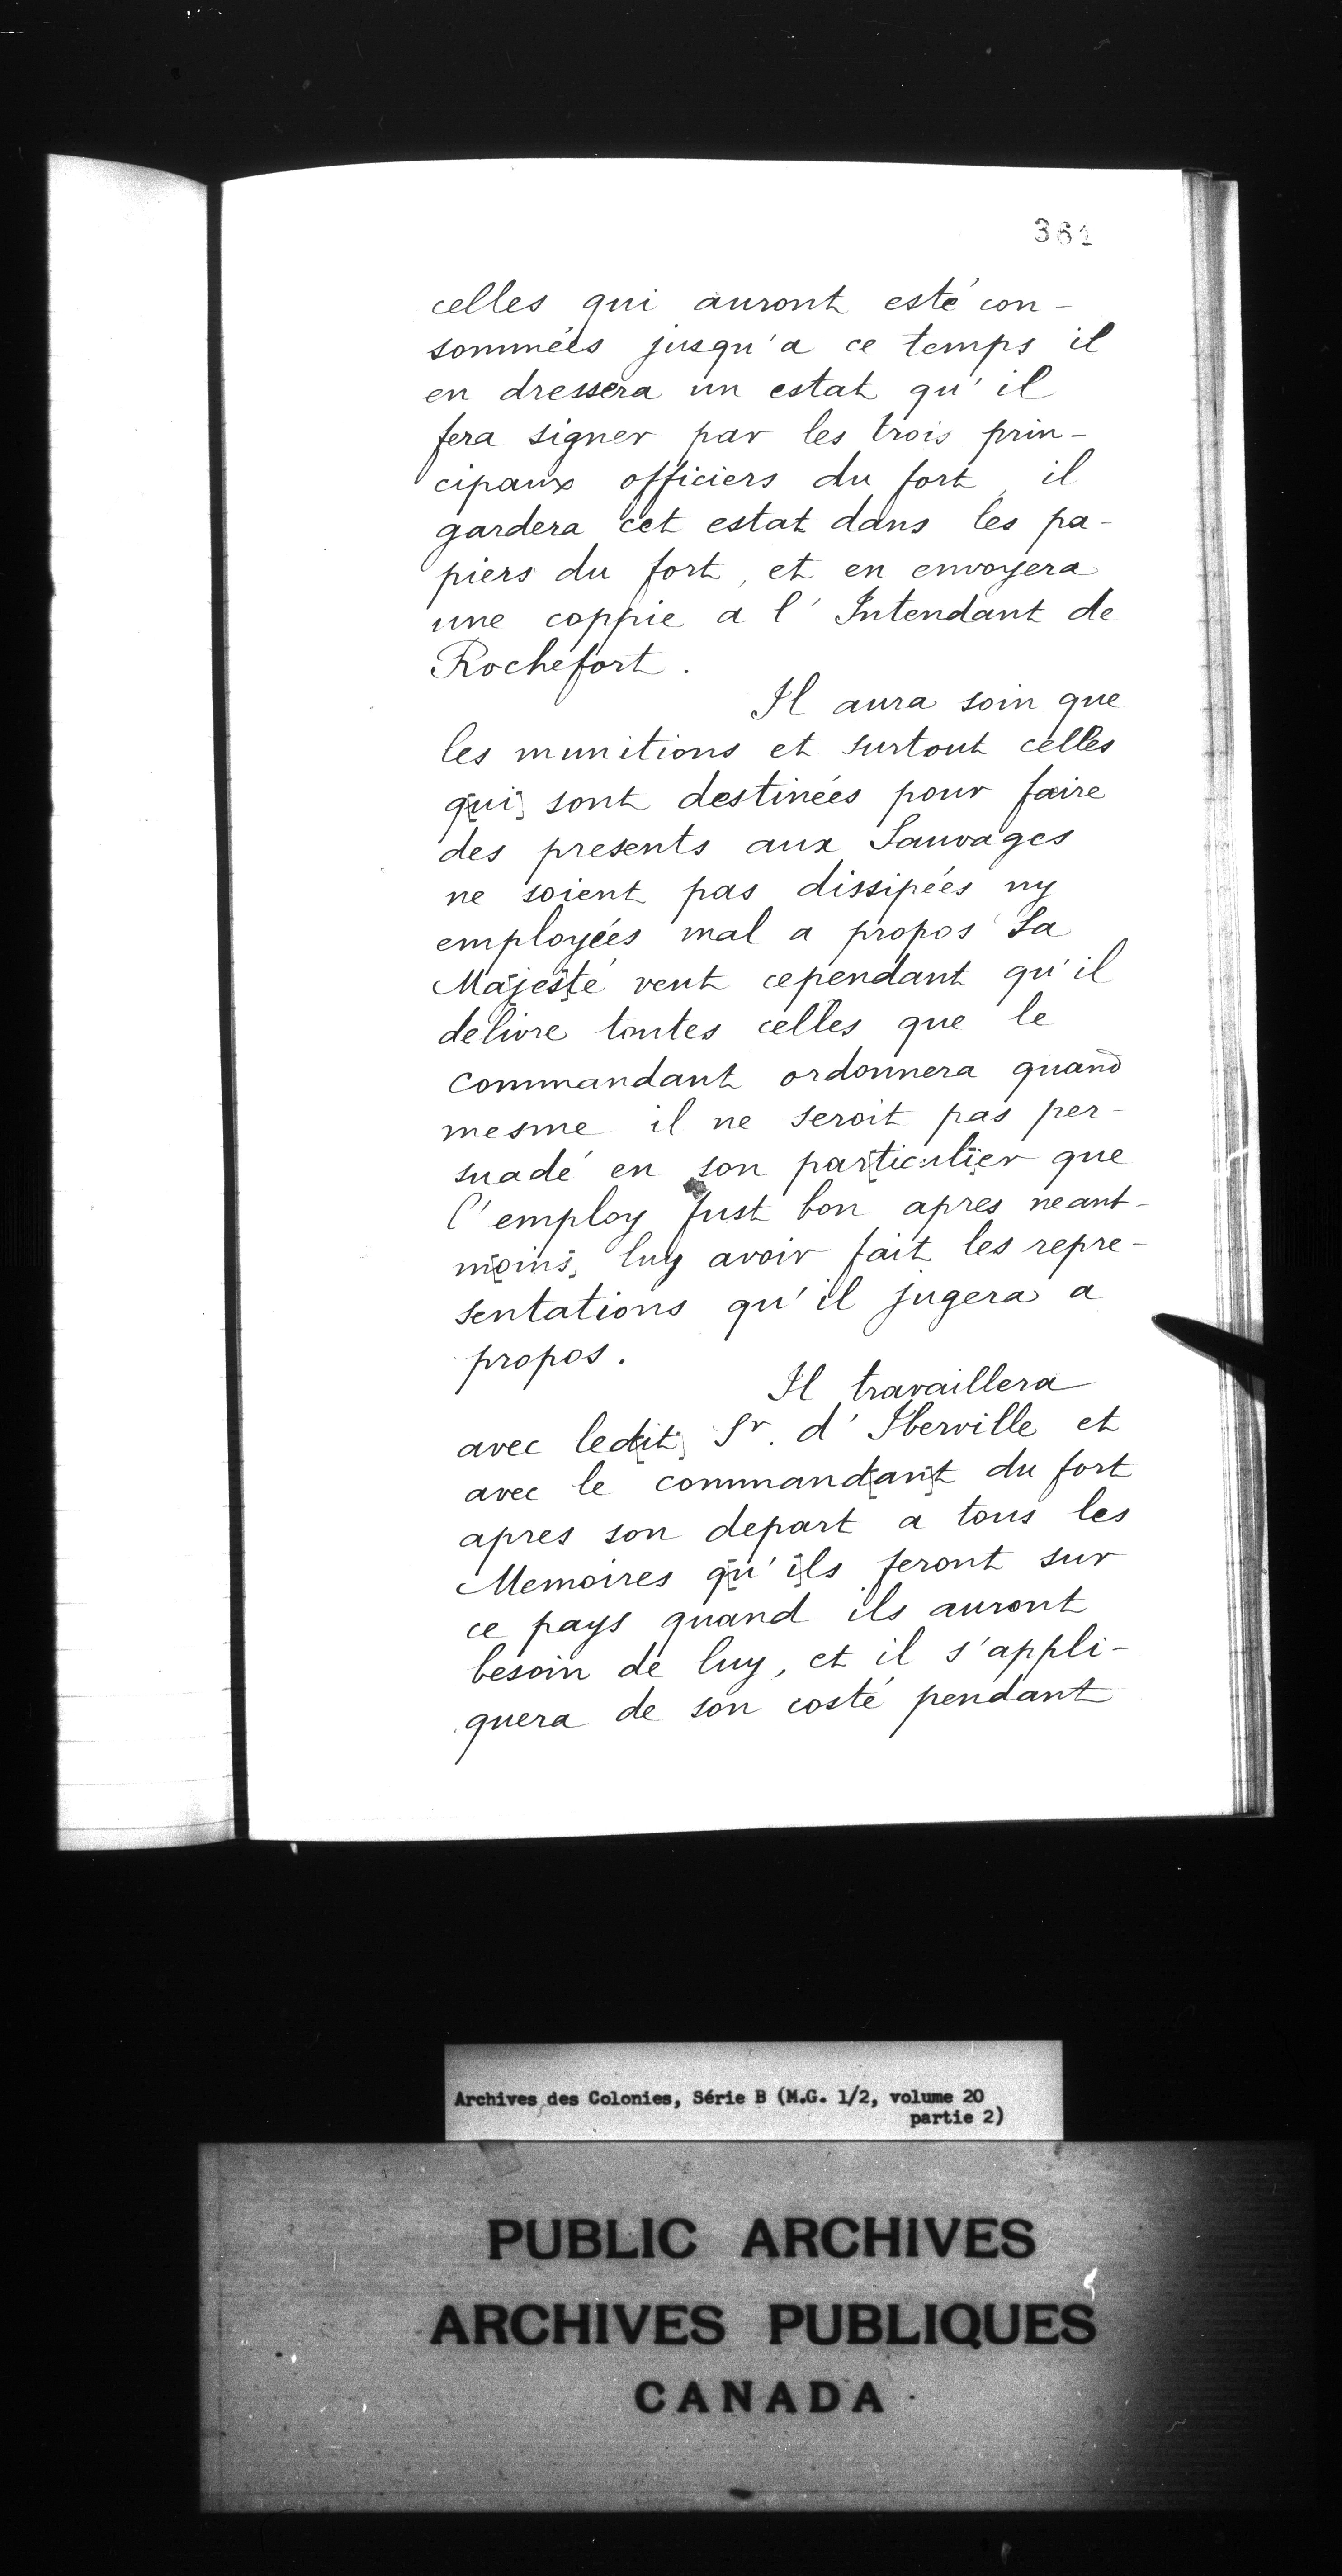 361
celles qui auront esté con-
sommées jusqu'a ce temps il
en dressera un estat qu'il
fera signer par les trois prin-
cipaux officiers du fort, il
gardera cet estat dans les pa-
piers du fort, et en envoyera
une coppie a l'Intendant de
Rochefort.
Il aura soin que
les munitions et surtout celles
q[ui] sont destinées pour faire
des presents aux Sauvages
ne soient pas dissipées ny
employées mal a propos Sa
Ma[jes]té veut cependant qu'il
delivre toutes celles que le
commandant ordonnera quand
mesme il ne seroit pas per-
suadé en son par[ticuli]er que
l'employ fust bon apres neant-
m[oins] luy avoir fait les repre-
sentations qu'il jugera a
propos.
Il travaillera
avec led[it] Sr. d'Iberville et
avec le command[an]t du fort
apres son depart a tous les
Memoires q[u'i]ls feront sur
ce pays quand ils auront
besoin de luy, et il s'appli-
quera de son costé pendant
Archives des Colonies, Série B (M.G. 1/2, volume 20
partie 2)
PUBLIC ARCHIVES
ARCHIVES PUBLIQUES
CANADA